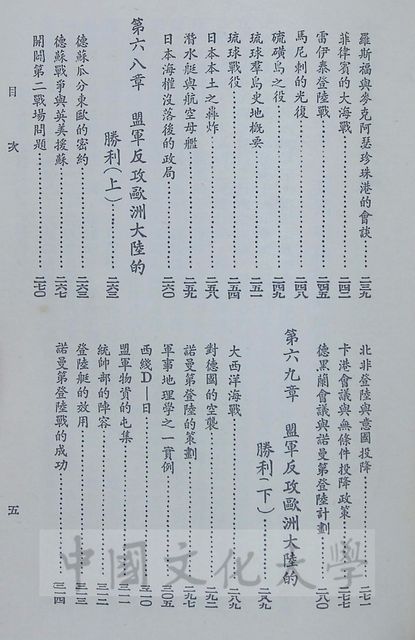 羅斯福與麥克阿瑟珍珠港的會談……二三九
菲律賓的大海戰……二四二
雷伊泰登陸戰……二四五
馬尼剌的光復……二四八
硫磺島之役……二四九
琉球羣島史地概要……二五一
琉球戰役……二五四
日本本土之轟炸……二五八
潛水艇與航空母艦……二五九
日本海權沒落後的政局……二六〇
第六八章 盟軍反攻歐洲大陸的
勝利(上)……二六三
德蘇瓜分東歐的密約……二六三
德蘇戰爭與英美援蘇……二六七
開闢第二戰場問題……二七〇
北非登陸與意國投降……二七一
卡港會議與無條件投降政策……二七七
德黑蘭會議與諾曼第登陸計劃……二八〇
第六九章 盟軍反攻歐洲大陸的
勝利(下)……二八九
大西洋海戰……二八九
對德國的空襲……二九二
諾曼第登陸的策劃……二九七
軍事地理學之一實例……三〇五
西綫D—日……三一〇
盟軍物資的屯集……三一一
統帥部的陣容……三一二
登陸艇的效用……三一三
諾曼第登陸戰的成功……三一四
目次
五
中國文化大學